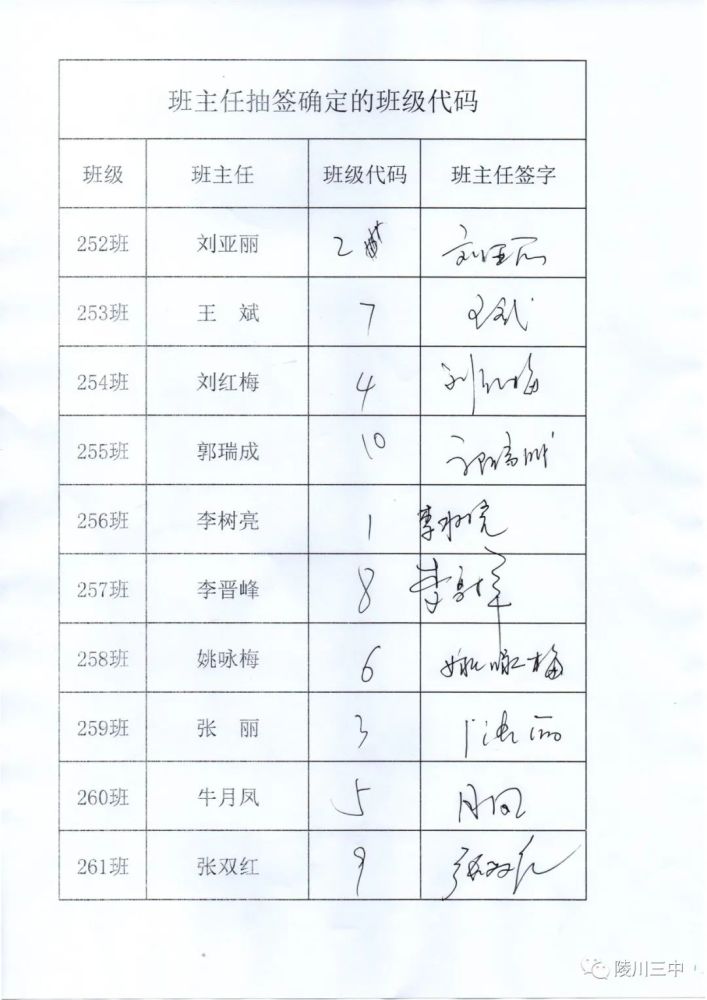 班主任抽签确定的班级代码
班级 班主任 班级代码 班主任签字
252班 刘亚丽 2 刘亚丽
253班 王 斌 7 王斌
254班 刘红梅 4 刘红梅
255班 郭瑞成 10 郭瑞成
256班 李树亮 1 李树亮
257班 李晋峰 8
258班 姚咏梅 6 姚咏梅
259班 张 丽 3
260班 牛月凤 5 月凤
261班 张双红 9 张双红
陵川三中